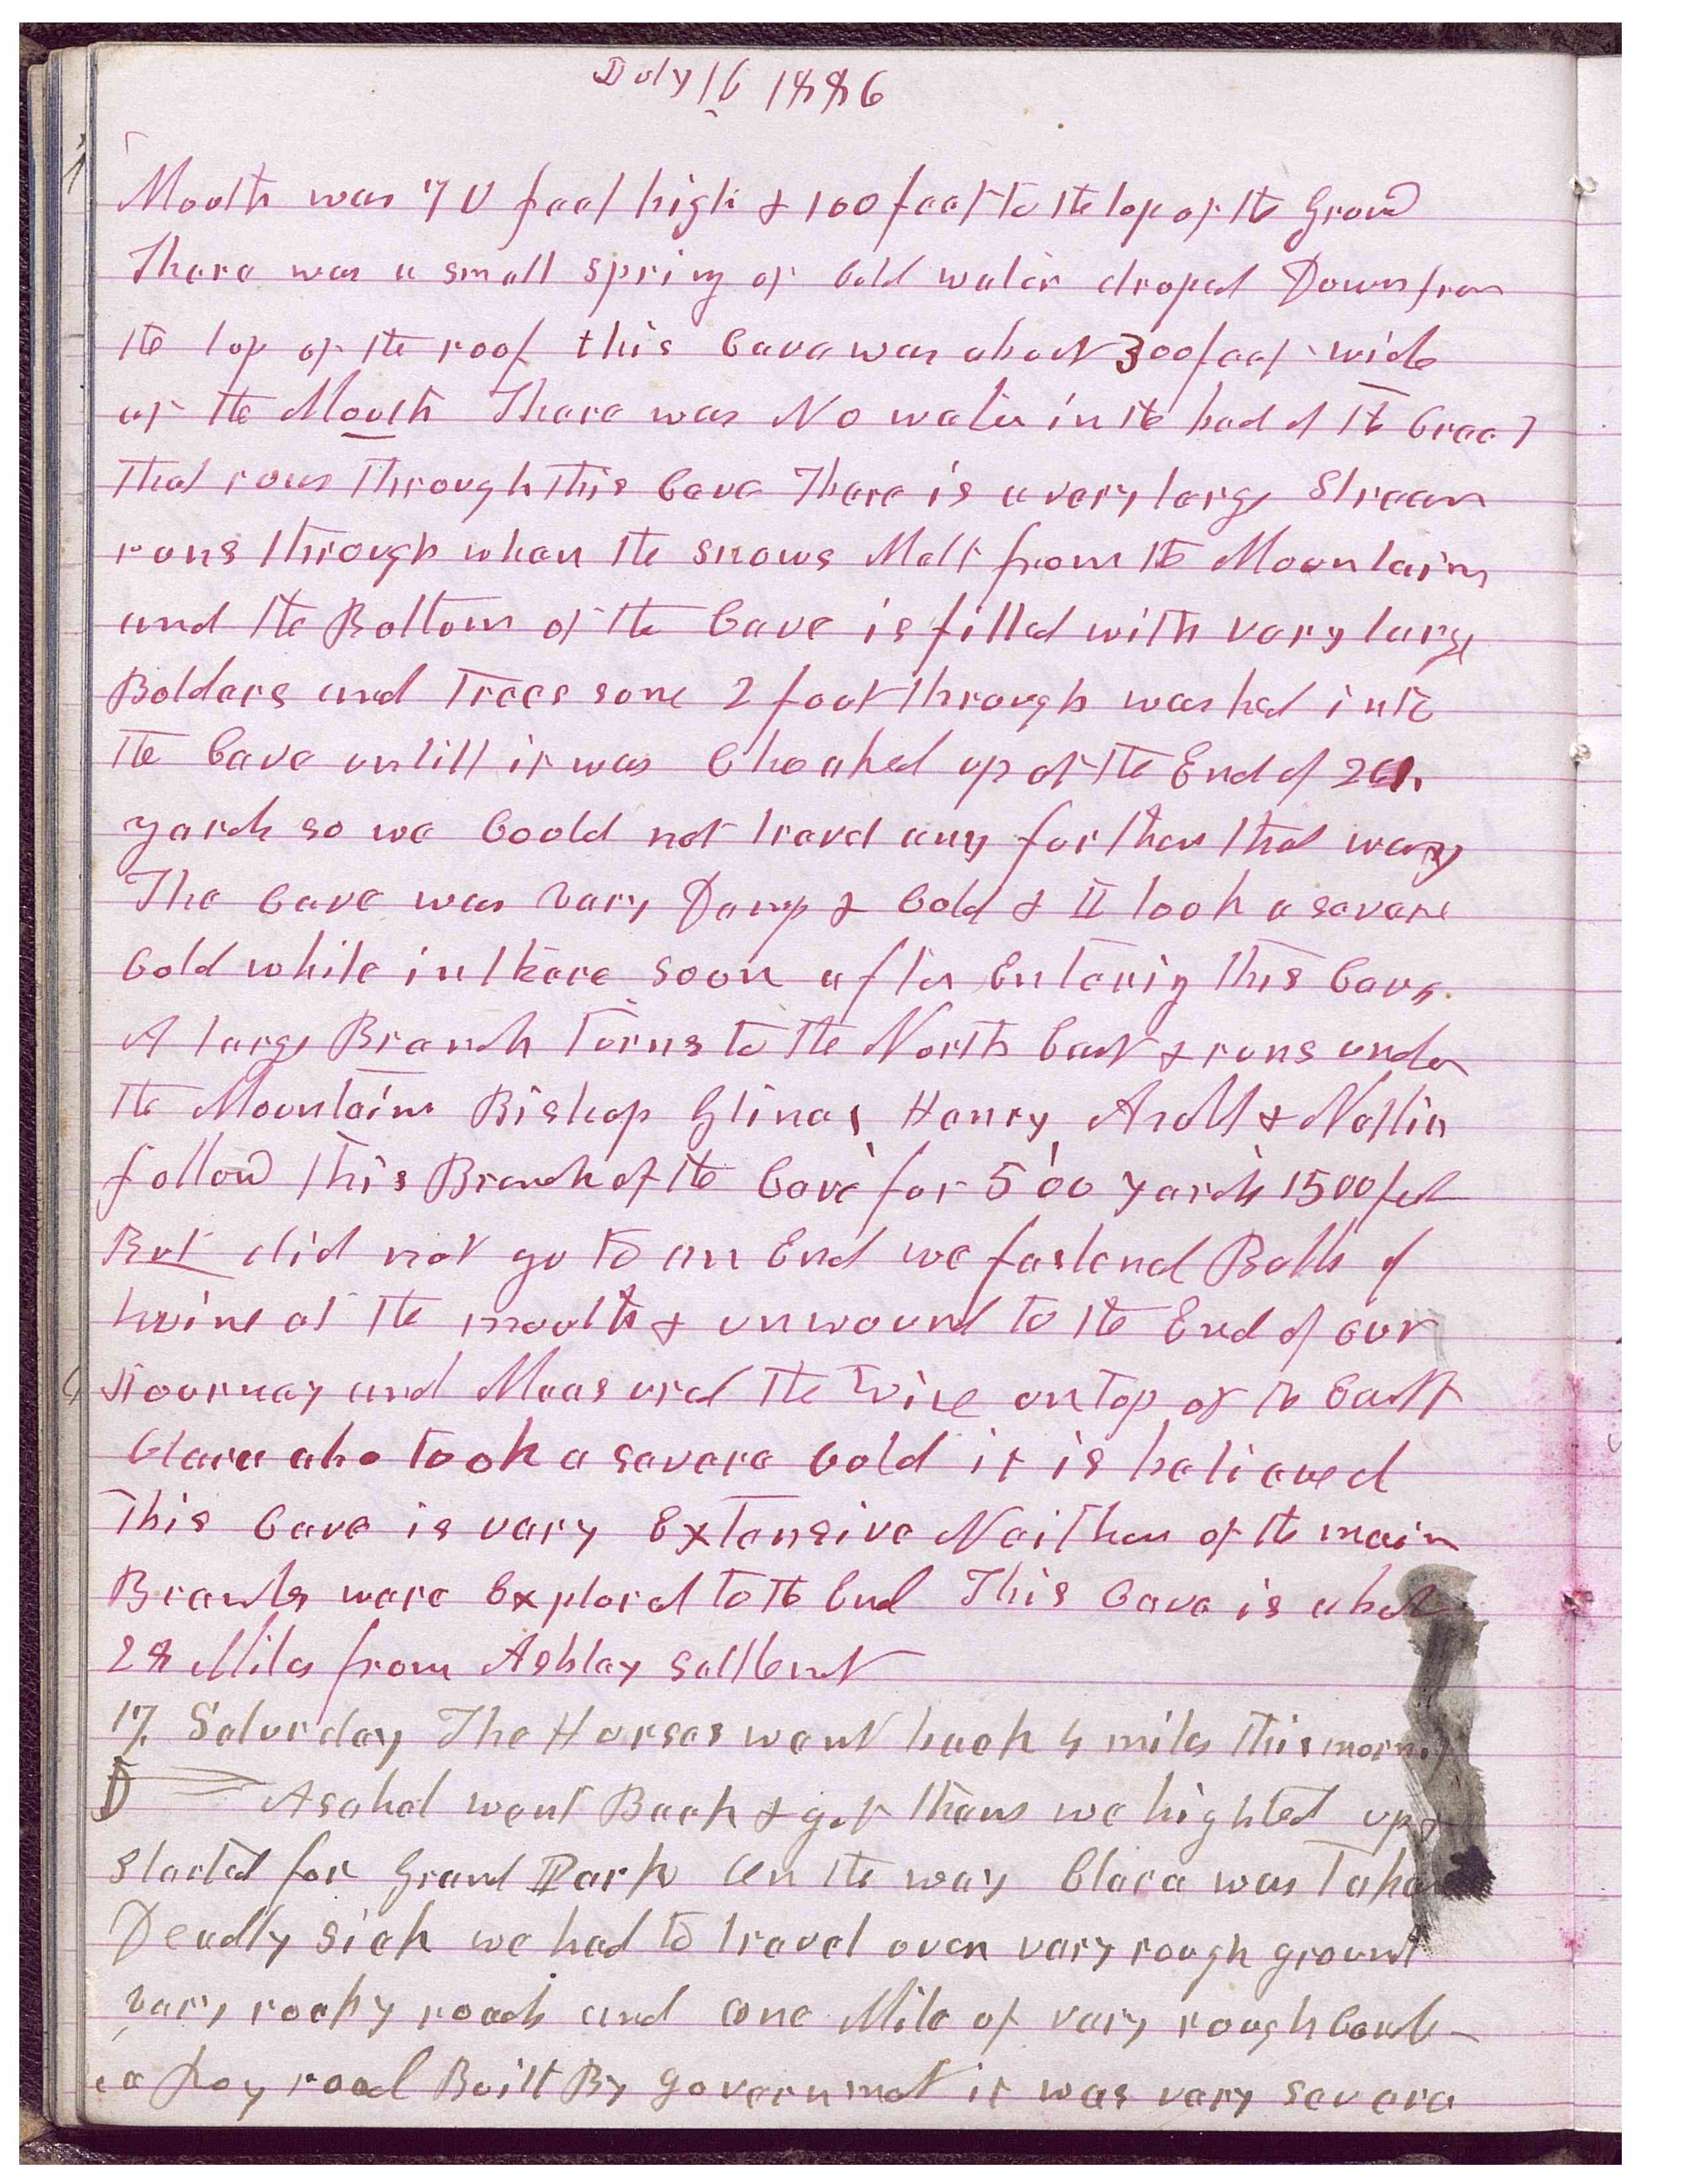 July 16 1886
Mouth was 70 feet high & 100 feet to the top of the Ground
There was a small spring of Cold water droped Down from
the top of the roof this Cave was about 300 feet wide
at the Mouth There was No water in the bed of the Creek
that runs through this Cave There is a very large Stream
runs through when the snows Melt from the Mountains
and the Bottom of the Cave is filled with very large
Bolders and Trees some 2 foot through washed into
the Cave untill it was Choaked up at the End of
yards so we Could not travel any further that way
The Cave was vary Damp & Cold & I took a severe
Cold while in there soon after Entering this Cave
A large Branch turns to the North East & runs under
the Mountains Bishop Glines Henry &
follow this Branch of the Cave for 500 yards 1500 feet
But did not go to an End we fastend Balls of
twine at the mouth & unwound to the End of our
Journey and Measured the Twine on top of the Earth
Clara also took a severe Cold it is believed
This Cave is vary Extensive Neither of the main
Branches were Explored to the End This Cave is about
28 Miles from Ashley settlement
17. Saturday The Horses went back 4 miles this morning
Asahel went Back & got them we highted up &
started for Grand Park On the way Clara was Taken
Deadly sick we had to travel over vary rough ground
vary rocky roads and one Mile of vary rough
road Built By government it was vary severe